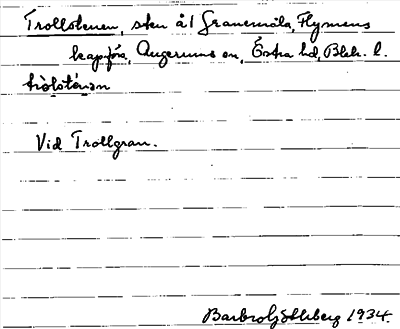 Trollstenen, sten å 1 Granemåla, Flymens
kapförs, Augerums sn, Östra hd, Blek. l.
tròlsténən
Vid Trollgran.
Barbro Ljddberg 1934.